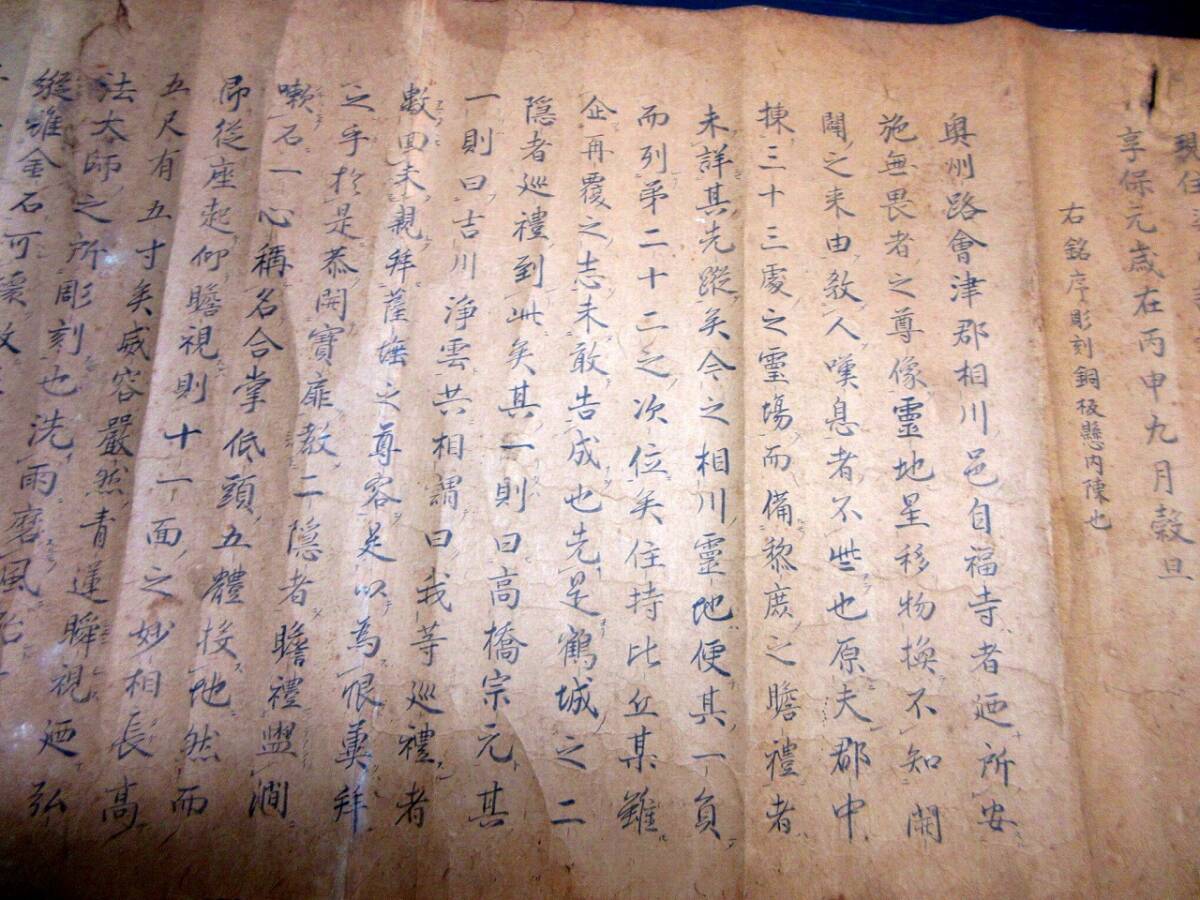 現住
享保元歳在丙申九月穀旦
右銘序彫刻銅板懸内陳也
奥州路會津郡相川邑自福寺者廼所安
施無畏者之尊像靈地星移物換不知開
闢之来由敎人嘆息者不些也原夫郡中
揀三十三處之霊場而備黎庶之瞻禮者
未詳其先蹤矣今之相川靈地便其一員
而列第二十二之次位矣住持比丘某雖
企再覆之志未敢告成也先是鶴城之二
隠者巡禮到此矣其一則曰高橋宗元其
一則曰吉川浄雲共相謂曰我等巡禮者
數回未親拜薩埵之尊容是以為恨冀拜
之乎於是恭開寶扉敎二隠者瞻禮盥澗
嗽石一心稱名合掌低頭五體投地然而
即從座起仰瞻視則十一面之妙相長高
五尺有五寸矣威容嚴然青蓮瞬視廼弘
法大師之所彫刻也洗雨磨風
縦雖金石可壞